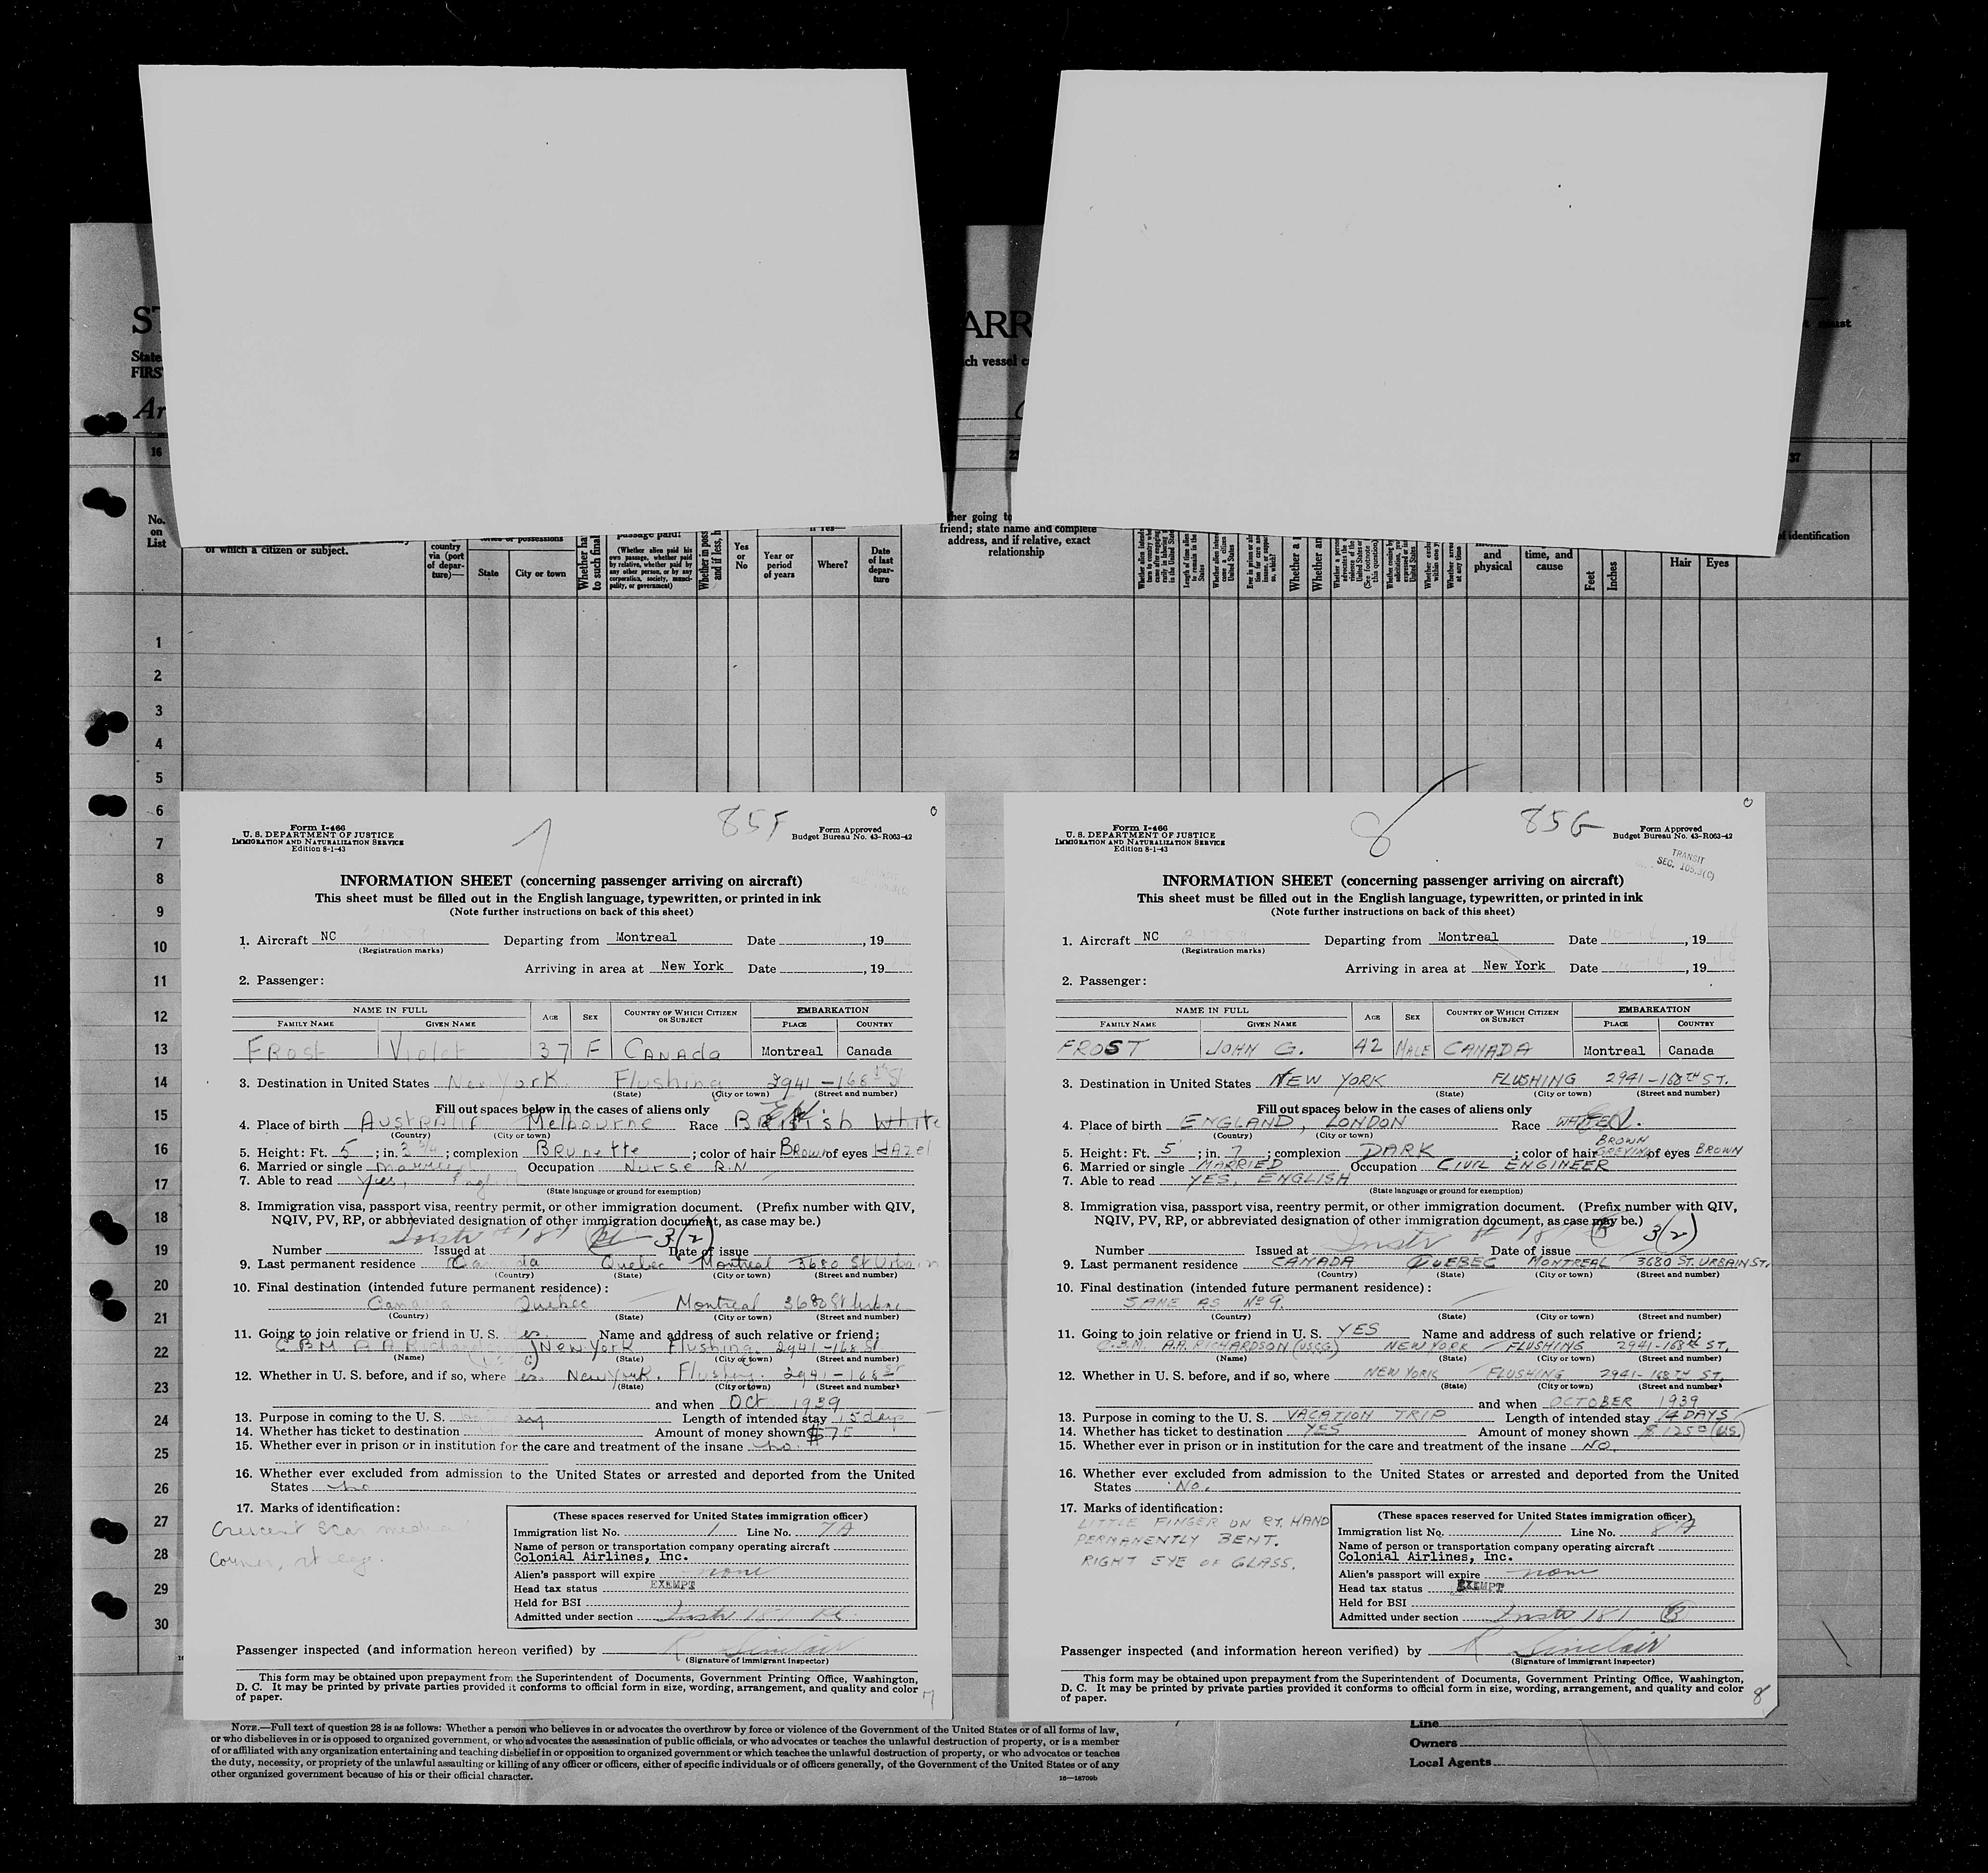 ST
ARR
must
State
ch vessel c
FIRS
Ar
16
37
No.
on
List
of which a citizen or subject.
country
via (port
of depar-
ture)—
State
City or town
passage paid?
(Whether alien paid his
own passage, whether paid
by relative, whether paid by
any other person, or by any
corporation, society, munici-
pality, or government)
Yes
or
No
Year or
period
of years
Where?
Date
of last
depar-
ture
her going to
friend; state name and complete
address, and if relative, exact
relationship
and
physical
time, and
cause
Feet
Inches
Hair
Eyes
of identification
1
2
3
4
5
6
7
8
9
10
11
12
13
14
15
16
17
18
19
20
21
22
23
24
25
26
27
28
29
30
7
85F
Form I-466
U. S. DEPARTMENT OF JUSTICE
IMMIGRATION AND NATURALIZATION SERVICE
Edition 8-1-43
Form Approved
Budget Bureau No. 43-R063-42
INFORMATION SHEET (concerning passenger arriving on aircraft)
This sheet must be filled out in the English language, typewritten, or printed in ink
(Note further instructions on back of this sheet)
1. Aircraft NC Departing from Montreal Date , 19
(Registration marks)
Arriving in area at New York Date , 19
2. Passenger:
NAME IN FULL AGE SEX COUNTRY OF WHICH CITIZEN OR SUBJECT EMBARKATION
FAMILY NAME GIVEN NAME PLACE COUNTRY
Frost Violet 37 F Canada Montreal Canada
3. Destination in United States New York Flushing 2941-168th St
(State) (City or town) (Street and number)
Fill out spaces below in the cases of aliens only
4. Place of birth Australia Melbourne Race British White
(Country) (City or town)
5. Height: Ft. 5 ; in. 2 3/4 ; complexion Brunette ; color of hair Brown of eyes Hazel
6. Married or single Married Occupation Nurse R.N
7. Able to read Yes, English
(State language or ground for exemption)
8. Immigration visa, passport visa, reentry permit, or other immigration document. (Prefix number with QIV,
NQIV, PV, RP, or abbreviated designation of other immigration document, as case may be.)
Instr 181 3(2)
Number Issued at Date of issue
9. Last permanent residence Canada Quebec Montreal 3680 St Urbain
(Country) (State) (City or town) (Street and number)
10. Final destination (intended future permanent residence):
Canada Quebec Montreal 3680 St Urbain
(Country) (State) (City or town) (Street and number)
11. Going to join relative or friend in U. S. Yes Name and address of such relative or friend:
C B M A A Richardson (USCG) New York Flushing 2941-168 St
(Name) (State) (City or town) (Street and number)
12. Whether in U. S. before, and if so, where Yes. New York. Flushing. 2941-168 St
(State) (City or town) (Street and number)
and when Oct 1939
13. Purpose in coming to the U. S. Length of intended stay 15 days
14. Whether has ticket to destination Amount of money shown $75
15. Whether ever in prison or in institution for the care and treatment of the insane no.
16. Whether ever excluded from admission to the United States or arrested and deported from the United
States no
17. Marks of identification:
Crescent scar medial
Corner, rt leg.
(These spaces reserved for United States immigration officer)
Immigration list No. 1 Line No. 7A
Name of person or transportation company operating aircraft
Colonial Airlines, Inc.
Alien's passport will expire none
Head tax status EXEMPT
Held for BSI
Admitted under section Instr 181
Passenger inspected (and information hereon verified) by R Sinclair
(Signature of Immigrant Inspector)
This form may be obtained upon prepayment from the Superintendent of Documents, Government Printing Office, Washington,
D. C. It may be printed by private parties provided it conforms to official form in size, wording, arrangement, and quality and color
of paper.
7
8
85G
Form I-466
U. S. DEPARTMENT OF JUSTICE
IMMIGRATION AND NATURALIZATION SERVICE
Edition 8-1-43
Form Approved
Budget Bureau No. 43-R063-42
TRANSIT
SEC. 105.3(C)
INFORMATION SHEET (concerning passenger arriving on aircraft)
This sheet must be filled out in the English language, typewritten, or printed in ink
(Note further instructions on back of this sheet)
1. Aircraft NC Departing from Montreal Date 10-14, 19 44
(Registration marks)
Arriving in area at New York Date 10-14, 19 44
2. Passenger:
NAME IN FULL AGE SEX COUNTRY OF WHICH CITIZEN OR SUBJECT EMBARKATION
FAMILY NAME GIVEN NAME PLACE COUNTRY
FROST JOHN G. 42 MALE CANADA Montreal Canada
3. Destination in United States NEW YORK FLUSHING 2941-168TH ST.
(State) (City or town) (Street and number)
Fill out spaces below in the cases of aliens only
4. Place of birth ENGLAND, LONDON Race
(Country) (City or town)
5. Height: Ft. 5 ; in. 7 ; complexion DARK ; color of hair BROWN GREYING of eyes BROWN
6. Married or single MARRIED Occupation CIVIL ENGINEER
7. Able to read YES, ENGLISH
(State language or ground for exemption)
8. Immigration visa, passport visa, reentry permit, or other immigration document. (Prefix number with QIV,
NQIV, PV, RP, or abbreviated designation of other immigration document, as case may be.)
Number Issued at Instr # 181 B 3(2) Date of issue
9. Last permanent residence CANADA QUEBEC MONTREAL 3680 ST. URBAIN ST.
(Country) (State) (City or town) (Street and number)
10. Final destination (intended future permanent residence):
SAME AS Nº 9.
(Country) (State) (City or town) (Street and number)
11. Going to join relative or friend in U. S. YES Name and address of such relative or friend:
C.B.M. A.A. RICHARDSON (USCG) NEW YORK FLUSHING 2941-168th ST.
(Name) (State) (City or town) (Street and number)
12. Whether in U. S. before, and if so, where NEW YORK FLUSHING 2941-168TH ST.
(State) (City or town) (Street and number)
and when OCTOBER 1939
13. Purpose in coming to the U. S. VACATION TRIP Length of intended stay 14 DAYS
14. Whether has ticket to destination YES Amount of money shown $125 00 (U.S.)
15. Whether ever in prison or in institution for the care and treatment of the insane NO.
16. Whether ever excluded from admission to the United States or arrested and deported from the United
States NO.
17. Marks of identification:
LITTLE FINGER ON RT. HAND
PERMANENTLY BENT.
RIGHT EYE OF GLASS.
(These spaces reserved for United States immigration officer)
Immigration list No. 1 Line No. 8A
Name of person or transportation company operating aircraft
Colonial Airlines, Inc.
Alien's passport will expire none
Head tax status EXEMPT
Held for BSI
Admitted under section Instr 181 B
Passenger inspected (and information hereon verified) by R Sinclair
(Signature of Immigrant Inspector)
This form may be obtained upon prepayment from the Superintendent of Documents, Government Printing Office, Washington,
D. C. It may be printed by private parties provided it conforms to official form in size, wording, arrangement, and quality and color
of paper.
8
NOTE.—Full text of question 28 is as follows: Whether a person who believes in or advocates the overthrow by force or violence of the Government of the United States or of all forms of law,
or who disbelieves in or is opposed to organized government, or who advocates the assassination of public officials, or who advocates or teaches the unlawful destruction of property, or is a member
of or affiliated with any organization entertaining and teaching disbelief in or opposition to organized government or which teaches the unlawful destruction of property, or who advocates or teaches
the duty, necessity, or propriety of the unlawful assaulting or killing of any officer or officers, either of specific individuals or of officers generally, of the Government of the United States or of any
other organized government because of his or their official character.
16—18709b
Line
Owners
Local Agents